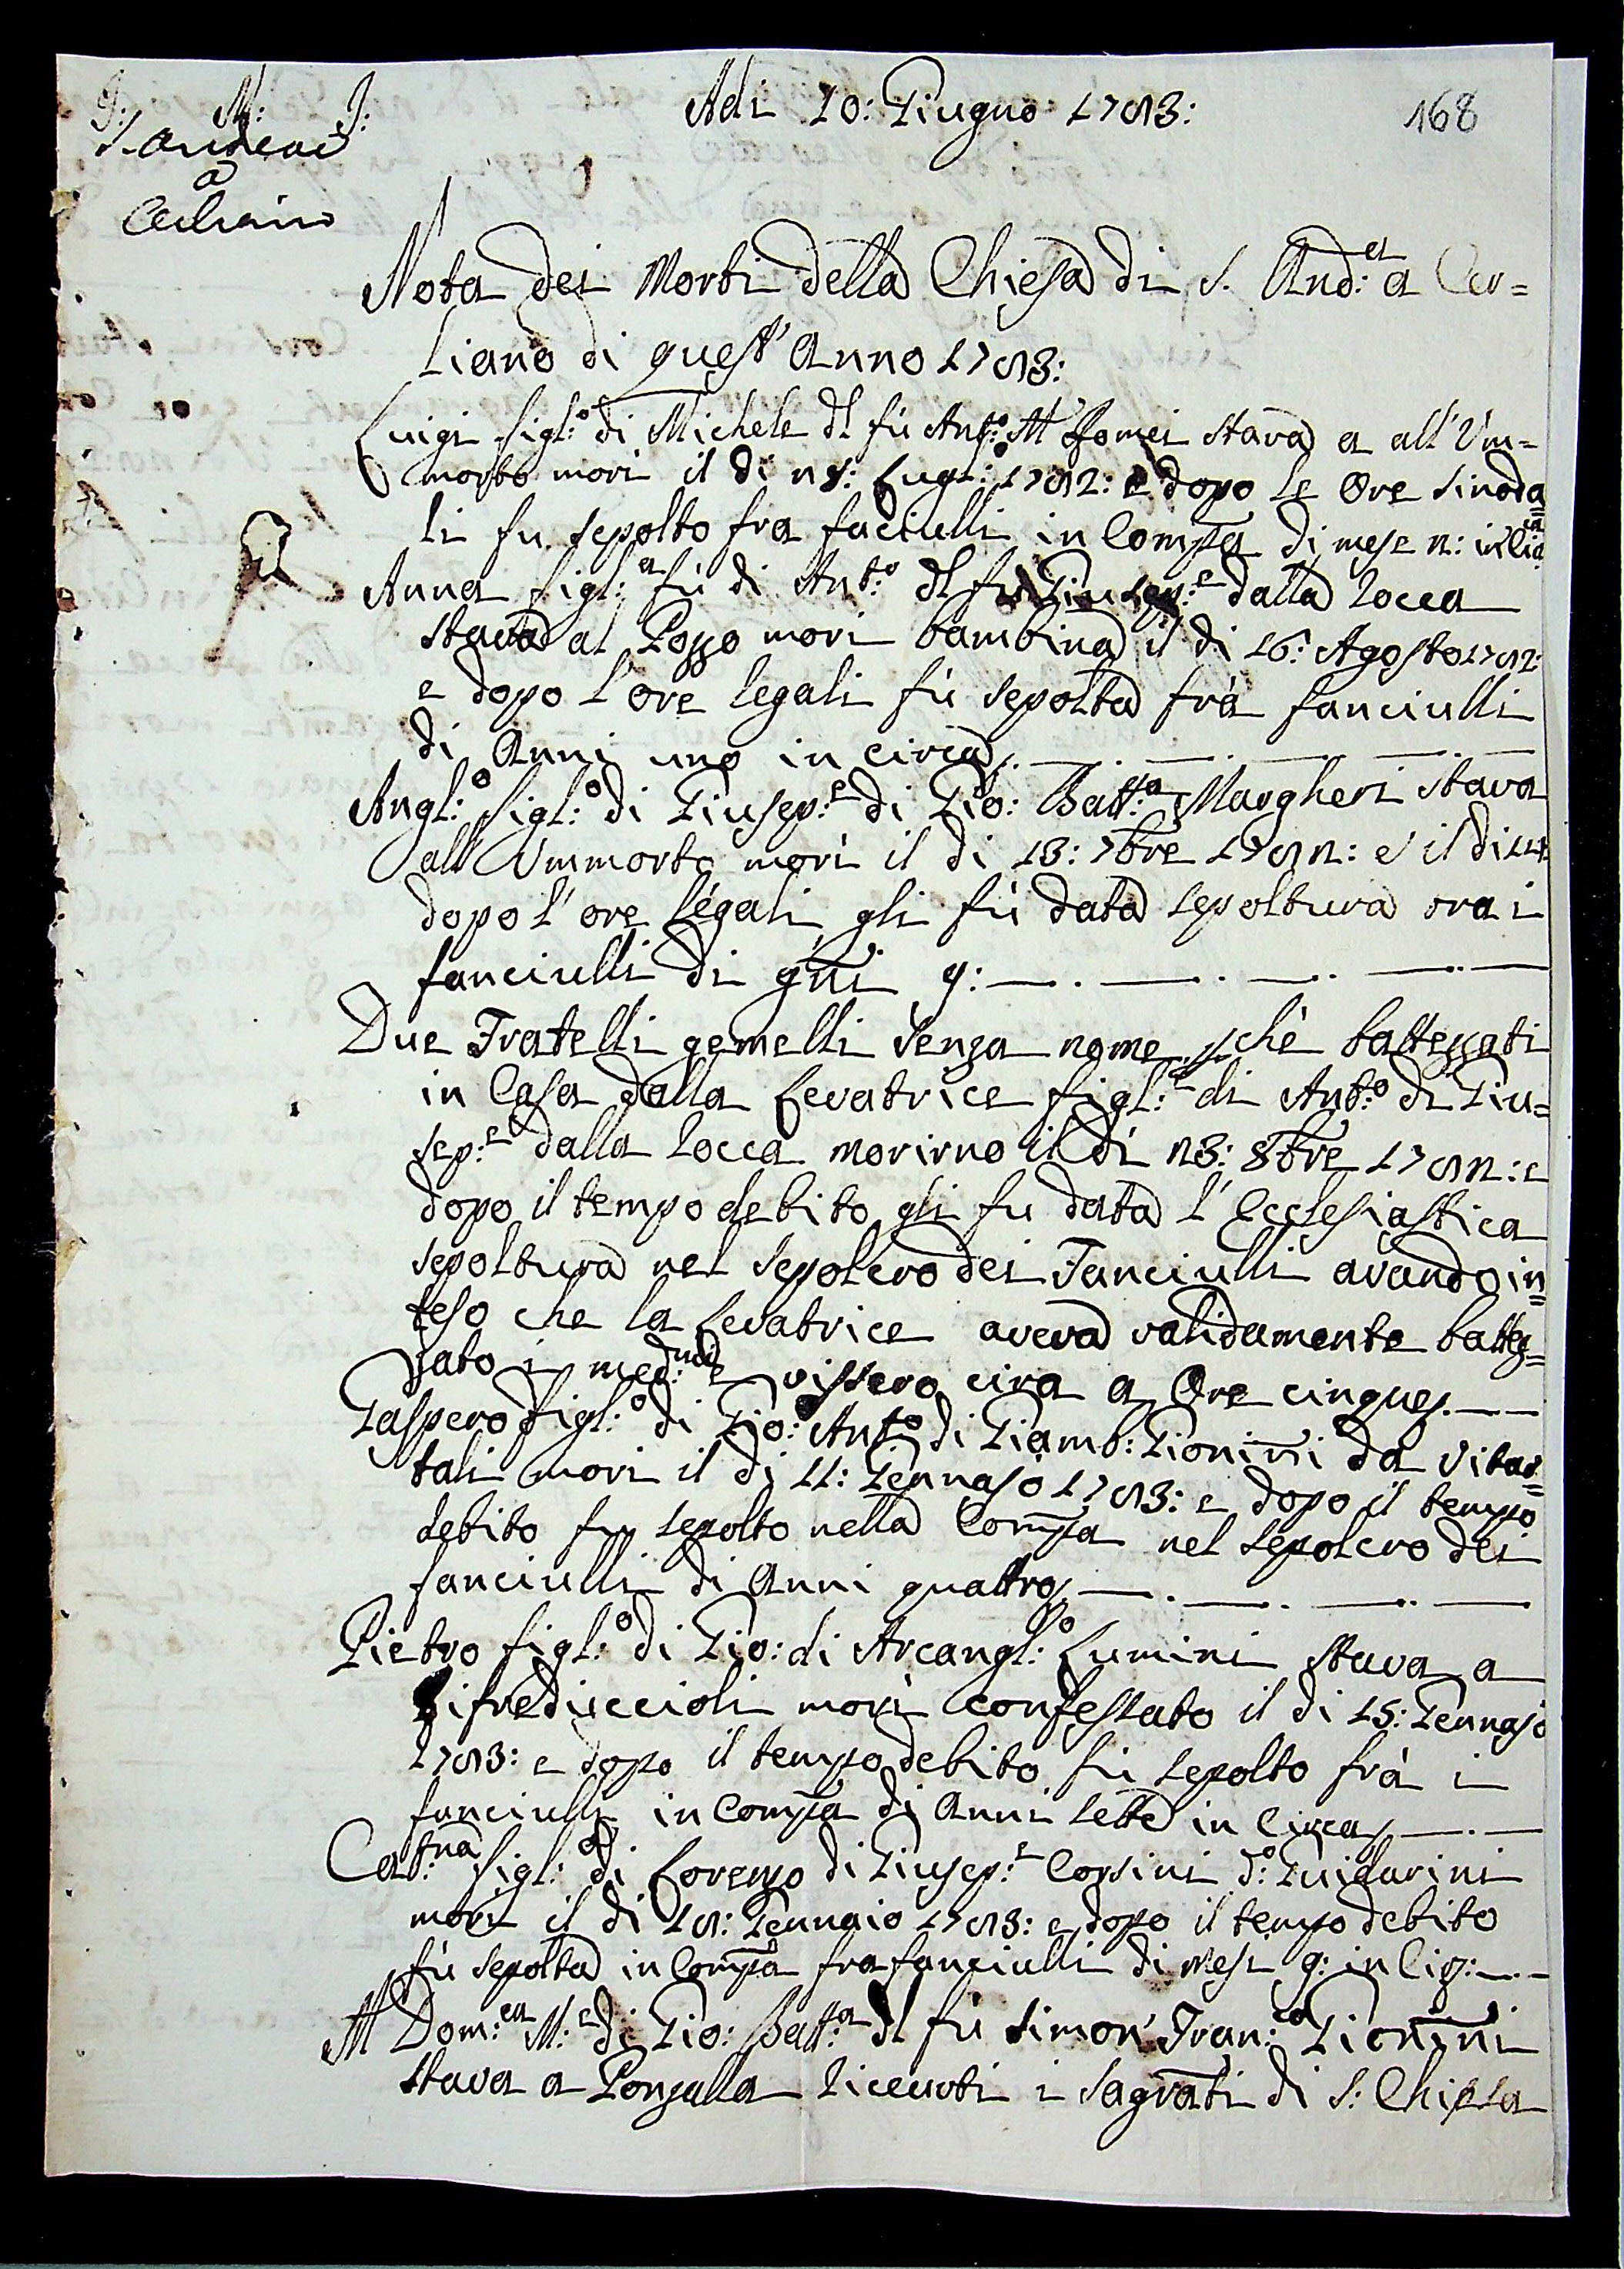 J: M: J:
S. Andrea
a
Cerliano
Adi 10: Giugno 1793:
168
Nota dei Morti della Chiesa di S. And:ea a Cer=
liano di quest'Anno 1793:
Luigi figl:o di Michele dl fù Ant:o M Romei stava a all'Um=
morto morì il dì 25: Lugl:o 1792: e dopo le Ore sinoda
li fu sepolto fra faciulli in Compa di mese 2: in Ca
Anna figl:a fù di Ant:o dl fu Giusep:e dalla Rocca
stava al Pozzo morì bambina il dì 16: Agosto 1792:
e dopo l'ore legali fù sepolta frà fanciulli
di Anni uno in circa
Angl:o figl:o di Giusep:e di Gio: Batt:a Margheri stava
all'Ummorto morì il dì 13: 7bre 1792: e il dì 14
dopo l'ore légali gli fù data sepoltura tra i
fanciulli di gni 9:
Due Fratelli gemelli senza nome pchè battezzati
in Casa dalla Levatrice figl:i di Ant:o di Giu=
sep:e dalla Rocca morirno il dì 23: 8bre 1792: e
dopo il tempo debito gli fu data l'Ecclesiastica
sepoltura nel sepolcro dei Fanciulli avando in=
teso che la Levatrice aveva validamente battez=
zato i med:mi e vissero circa a Ore cinque
Gaspero figl:o di Gio: Ant:o di Giamb: Gionini da Vita=
tali morì il dì 11: Gennajo 1793: e dopo il tempo
debito fu sepolto nella Compa nel sepolcro dei
fanciulli di Anni quattro
Pietro figl:o di Gio: di Arcangl:o Lumini stava a
Rifrediuccioli morì confessato il dì 15: Gennajo
1793: e dopo il tempo debito fù sepolto frà i
fanciulli in Compa di Anni sette in Circa
Cat:rina figl:a di Lorenzo di Giusep:e Corsini d:o Guidarini
morì il dì 19: Gennaio 1793: e dopo il tempo debito
fù sepolta in Compa fra fanciulli di Mesi 9: in Cir:
M Dom:ca M:e di Gio: Batt:a dl fù Simon Fran:co Gionini
stava a Ponzalla Ricevuti i Sagrati di S: Chiesa